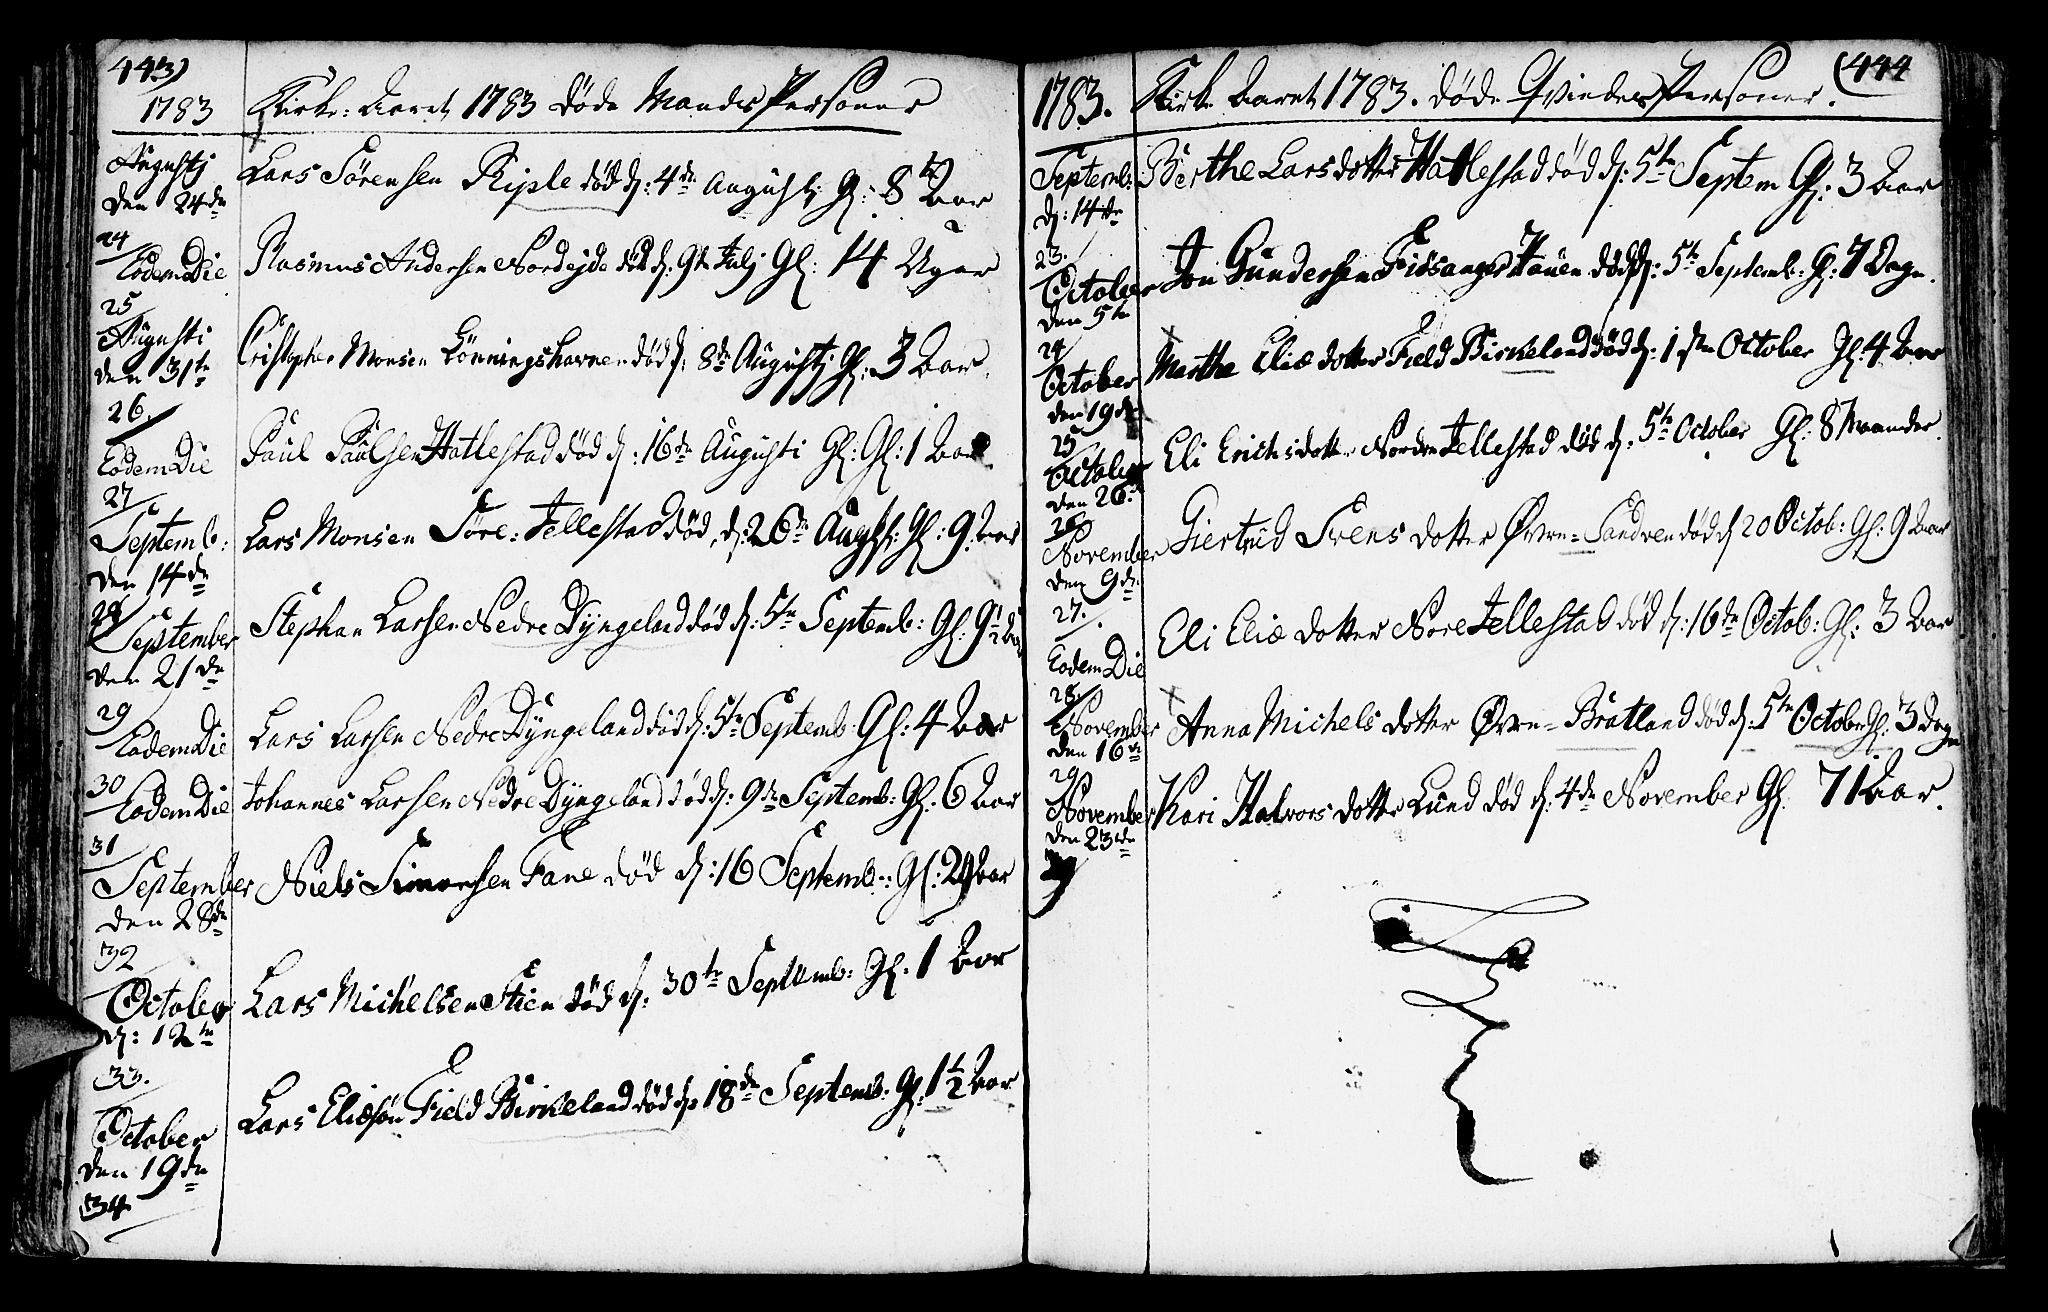 443)
1783
Kirke-Aaret 1783 døde MandsPersoner
Augustj
den 24de
24
Lars Sörensen Riple död d: 4de August: Gl: 8te Aar
Eodem Die
25
Rasmus Andersen Nordejde död d: 9de Julj Gl: 14 Uger
Augusti
den 31te
26.
Cristopher Monsen Lönningshavnen död d: 8de Augustj Gl: 3 Aar.
Eodem Die
27
Paul Paulsen Hatlestad död d: 16de Augusti Gl: Gl: 1 Aar
Septemb:
den 14de
28
Lars Monsen Söre: Tellestad död, d: 26de Augst: Gl: 9 Aar
September
den 21de
29
Stephan Larsen Nedre Dyngeland död d: 5te Septemb: Gl: 9½ Aar
Eodem Die
30
Lars Larsen Nedre Dyngeland död d: 5te Septemb: Gl: 4 Aar
Eodem Die
31
Johannes Larsen Nedre Dyngeland död d: 9de Septemb: Gl: 6 Aar
September
den 28de
32
Niels Simonsen Fane död d: 16 Septemb: Gl: 29 Aar
October
d: 12te
33.
Lars Michelsen Stien död d: 30te Septemb: Gl: 1 Aar
October
den 19de
34
Lars Eliæsön Field Birkeland död d: 18de Septemb: Gl: 1½ Aar
(444
1783.
Kirke Aaret 1783. døde QvindesPersoner.
Septemb:
d: 14de
23.
Berthe Larsdotter Hatlestad död d: 5te Septem Gl: 3 Aar
October
den 5te
24
Jon Gundersen Fidsanger Hauen död d: 5te Septemb: Gl: 7 Dage.
October
den 19de
25
Marthe Eliæ dotter Field Birkeland död d: 1ste October Gl: 4 Aar
October
den 26de
26
Eli Erichsdotter Nordre Tellestad död d: 5te October Gl: 8 Maaneder.
November
den 9de
27.
Giertrud Svens dotter Øvre=Sandven död d 20 Octob: Gl: 9 Aar
Eodem Die
28.
Eli Eliæ dotter Nore Tellestad död d: 16de Octob: Gl: 3 Aar
November
den 16de
29
Anna Michels dotter Øvre=Bratland död d: 5te Octobr Gl: 3 Dage
November
den 23de
Kari Halvors dotter Lund död d: 4de November Gl: 71 Aar.